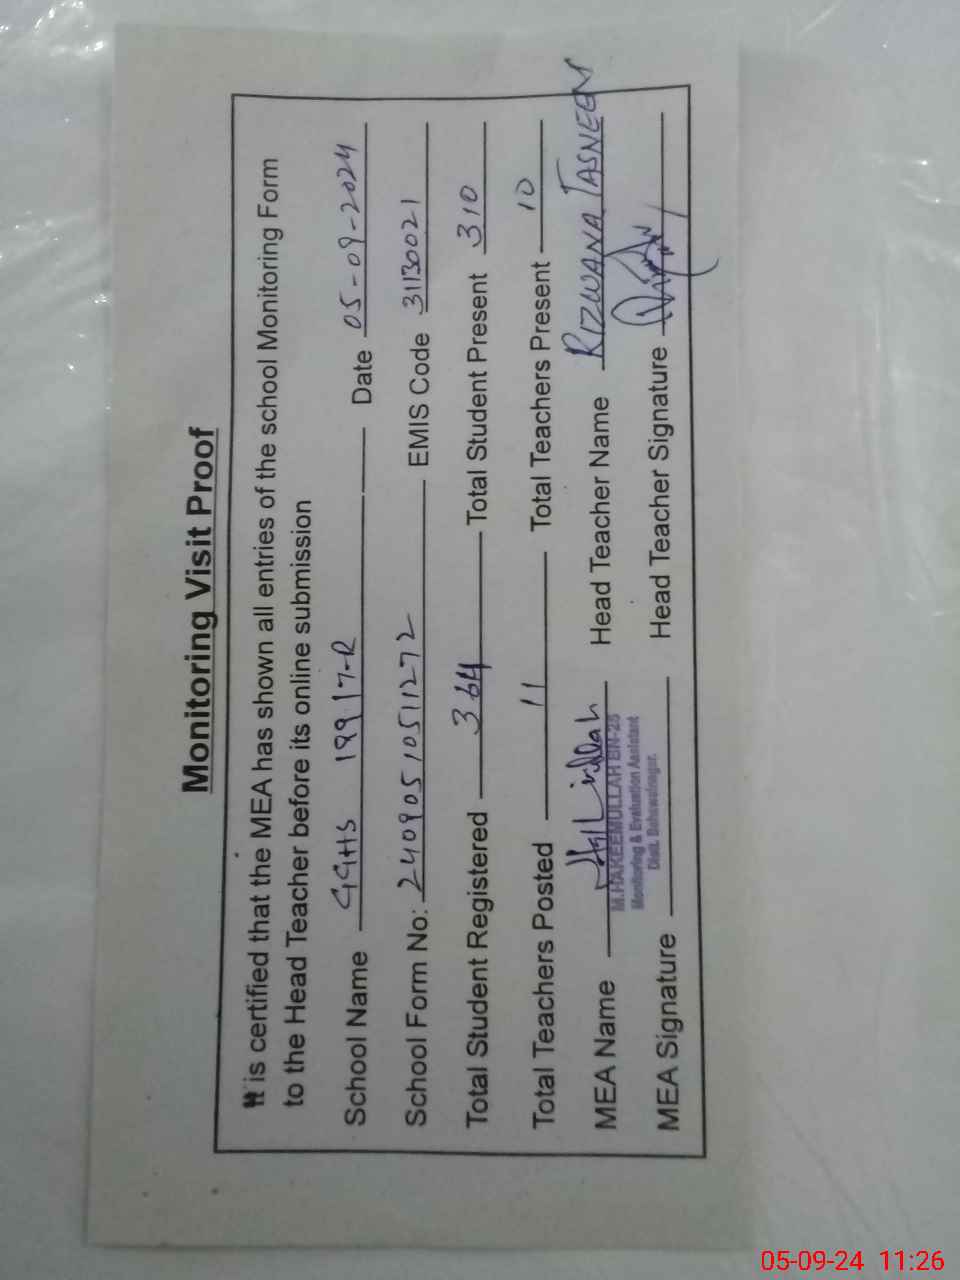 Monitoring Visit Proof
It is certified that the MEA has shown all entries of the school Monitoring Form
to the Head Teacher before its online submission
School Name GGHS 199 17-R Date 05-09-2024
School Form No: 240905 10511272 EMIS Code 31130021
Total Student Registered 364 Total Student Present 310
Total Teachers Posted 11 Total Teachers Present 10
MEA Name Head Teacher Name RIZWANA TASNEEM
M.HAKEEMULLAH BN-25
Monitoring & Evaluation Assistant
Distt. Bahawalnagar.
MEA Signature Head Teacher Signature
05-09-24 11:26